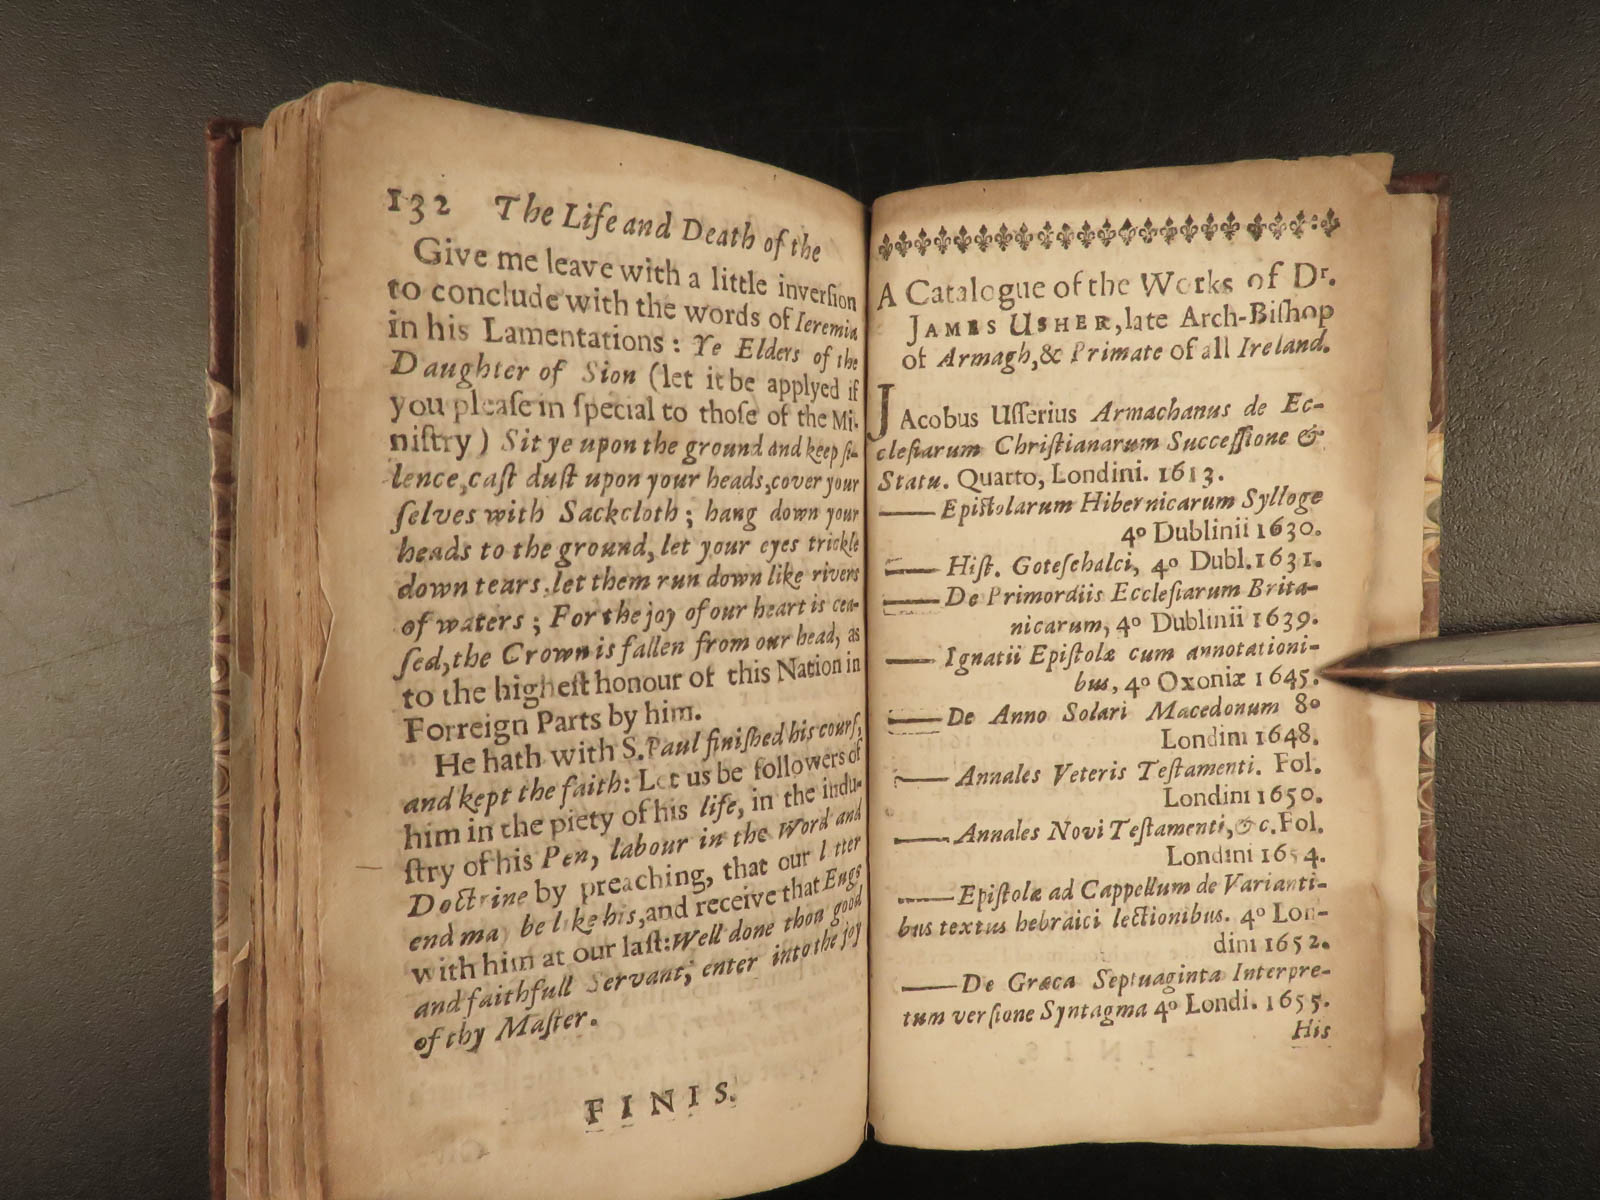 132 The Life and Death of the
Give me leave with a little inverſion
to conclude with the words of Ieremia
in his Lamentations : Ye Elders of the
Daughter of Sion (let it be applyed if
you pleaſe in ſpecial to thoſe of the Mi-
niſtry ) Sit ye upon the ground and keep ſi-
lence, caſt duſt upon your heads, cover your
ſelves with Sackcloth ; hang down your
heads to the ground, let your eyes trickle
down tears, let them run down like rivers
of waters ; For the joy of our heart is cea-
ſed, the Crown is fallen from our head, as
to the higheſt honour of this Nation in
Forreign Parts by him.
He hath with S. Paul finiſhed his courſ,
and kept the faith: Let us be followers of
him in the piety of his life, in the indu-
ſtry of his Pen, labour in the Word and
Doctrine by preaching, that our l tter
end ma be like his, and receive that Euge
with him at our laſt: Well done thou good
and faithfull Servant; enter into the joy
of thy Maſter.
FINIS.
A Catalogue of the Works of Dr.
JAMES USHER, late Arch-Biſhop
of Armagh, & Primate of all Ireland.
JAcobus Uſſerius Armachanus de Ec-
cleſiarum Chriſtianarum Succeſſione &
Statu. Quarto, Londini. 1613.
—— Epiſtolarum Hibernicarum Sylloge
4o Dublinii 1630.
—— Hiſt. Goteſchalci, 4o Dubl. 1631.
—— De Primordiis Eccleſiarum Brita-
nicarum, 4o Dublinii 1639.
—— Ignatii Epiſtolæ cum annotationi-
bus, 4o Oxoniæ 1645.
—— De Anno Solari Macedonum 8o
Londini 1648.
—— Annales Veteris Teſtamenti. Fol.
Londini 1650.
—— Annales Novi Teſtamenti, &c. Fol.
Londini 1654.
—— Epiſtolæ ad Cappellum de Varianti-
bus textus hebraici lectionibus. 4o Lon-
dini 1652.
—— De Græca Septuaginta Interpre-
tum verſione Syntagma 4o Londi. 1655.
His